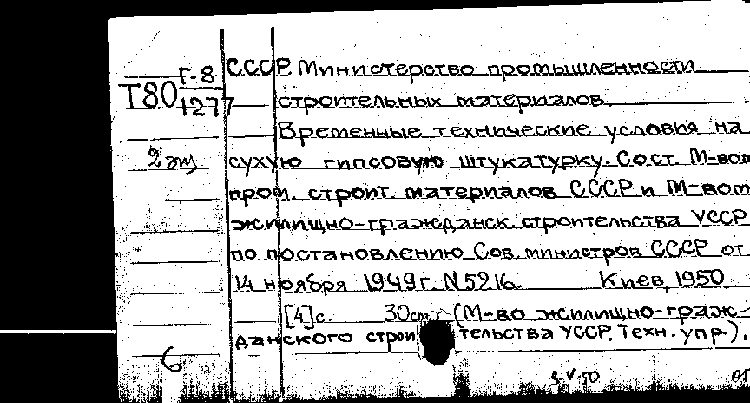 Г-8
Т80 1277
2 экз
СССР. Министерство промышленности
строительных материалов.
Временные технические условия на
сухую гипсовую штукатурку. Сост. М-вом
пром. строит. материалов СССР и М-вом
жилищно-гражданск. строительства УССР
по постановлению Сов. министров СССР от
14 ноября 1949г. N 5216. Киев, 1950
[4]с. 30см. (М-во жилищно-граж-
данского строительства УССР. Техн. упр.).
6